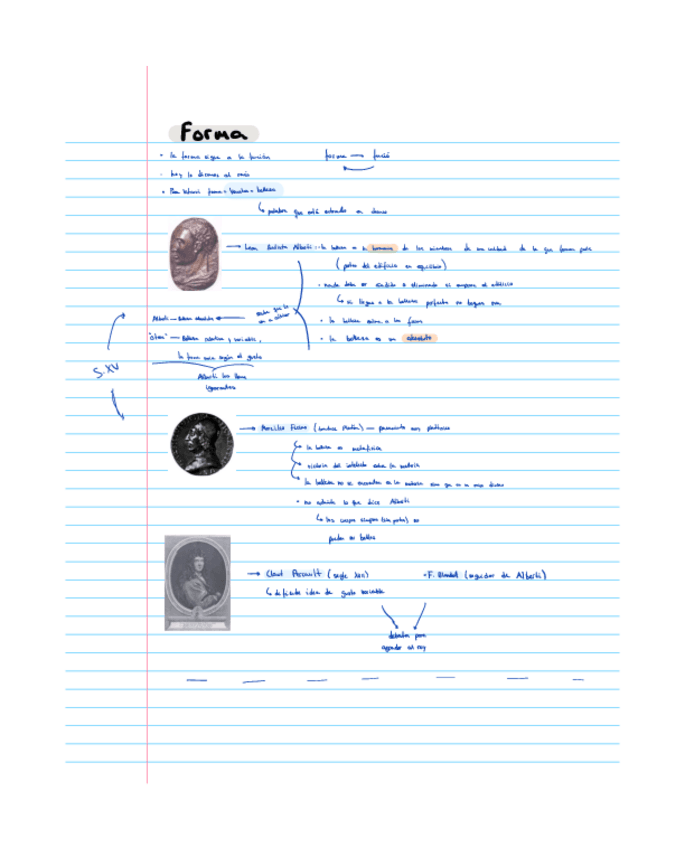 Forma
• la forma sigue a la función
forma → funció
• hoy lo decimos al revés
• Para Vitruvi forma = Venustas = belleza
↳ palabra que está entrando en desuso
→ Leon Battista Alberti: la belleza es la armonía de los miembros de una unidad de la que forman parte
(partes del edificio en equilibrio)
• nada debe ser añadido o eliminado si empeora el edificio
↳ si llegas a la belleza perfecta no hagas mas
• la belleza anima a las formas
• la belleza es un absoluto
Alberti — Belleza absoluta
"otros" — Belleza relativa y variable,
la forma varia según el gusto
Alberti los llama
ignorantes
S. XV
→ Marsilio Ficino (traduce Platón) — pensamiento neo platónico
la belleza es metafísica
victoria del intelecto sobre la materia
la belleza no se encuentra en la materia sino que es algo mas divino
• no admite lo que dice Alberti
↳ los cuerpos simples (sin partes) no
pueden ser bellos
→ Claud Perault (segle XVII)
• F. Blondell (seguidor de Alberti)
↳ defiende idea de gusto variable
debaten para
agradar al rey